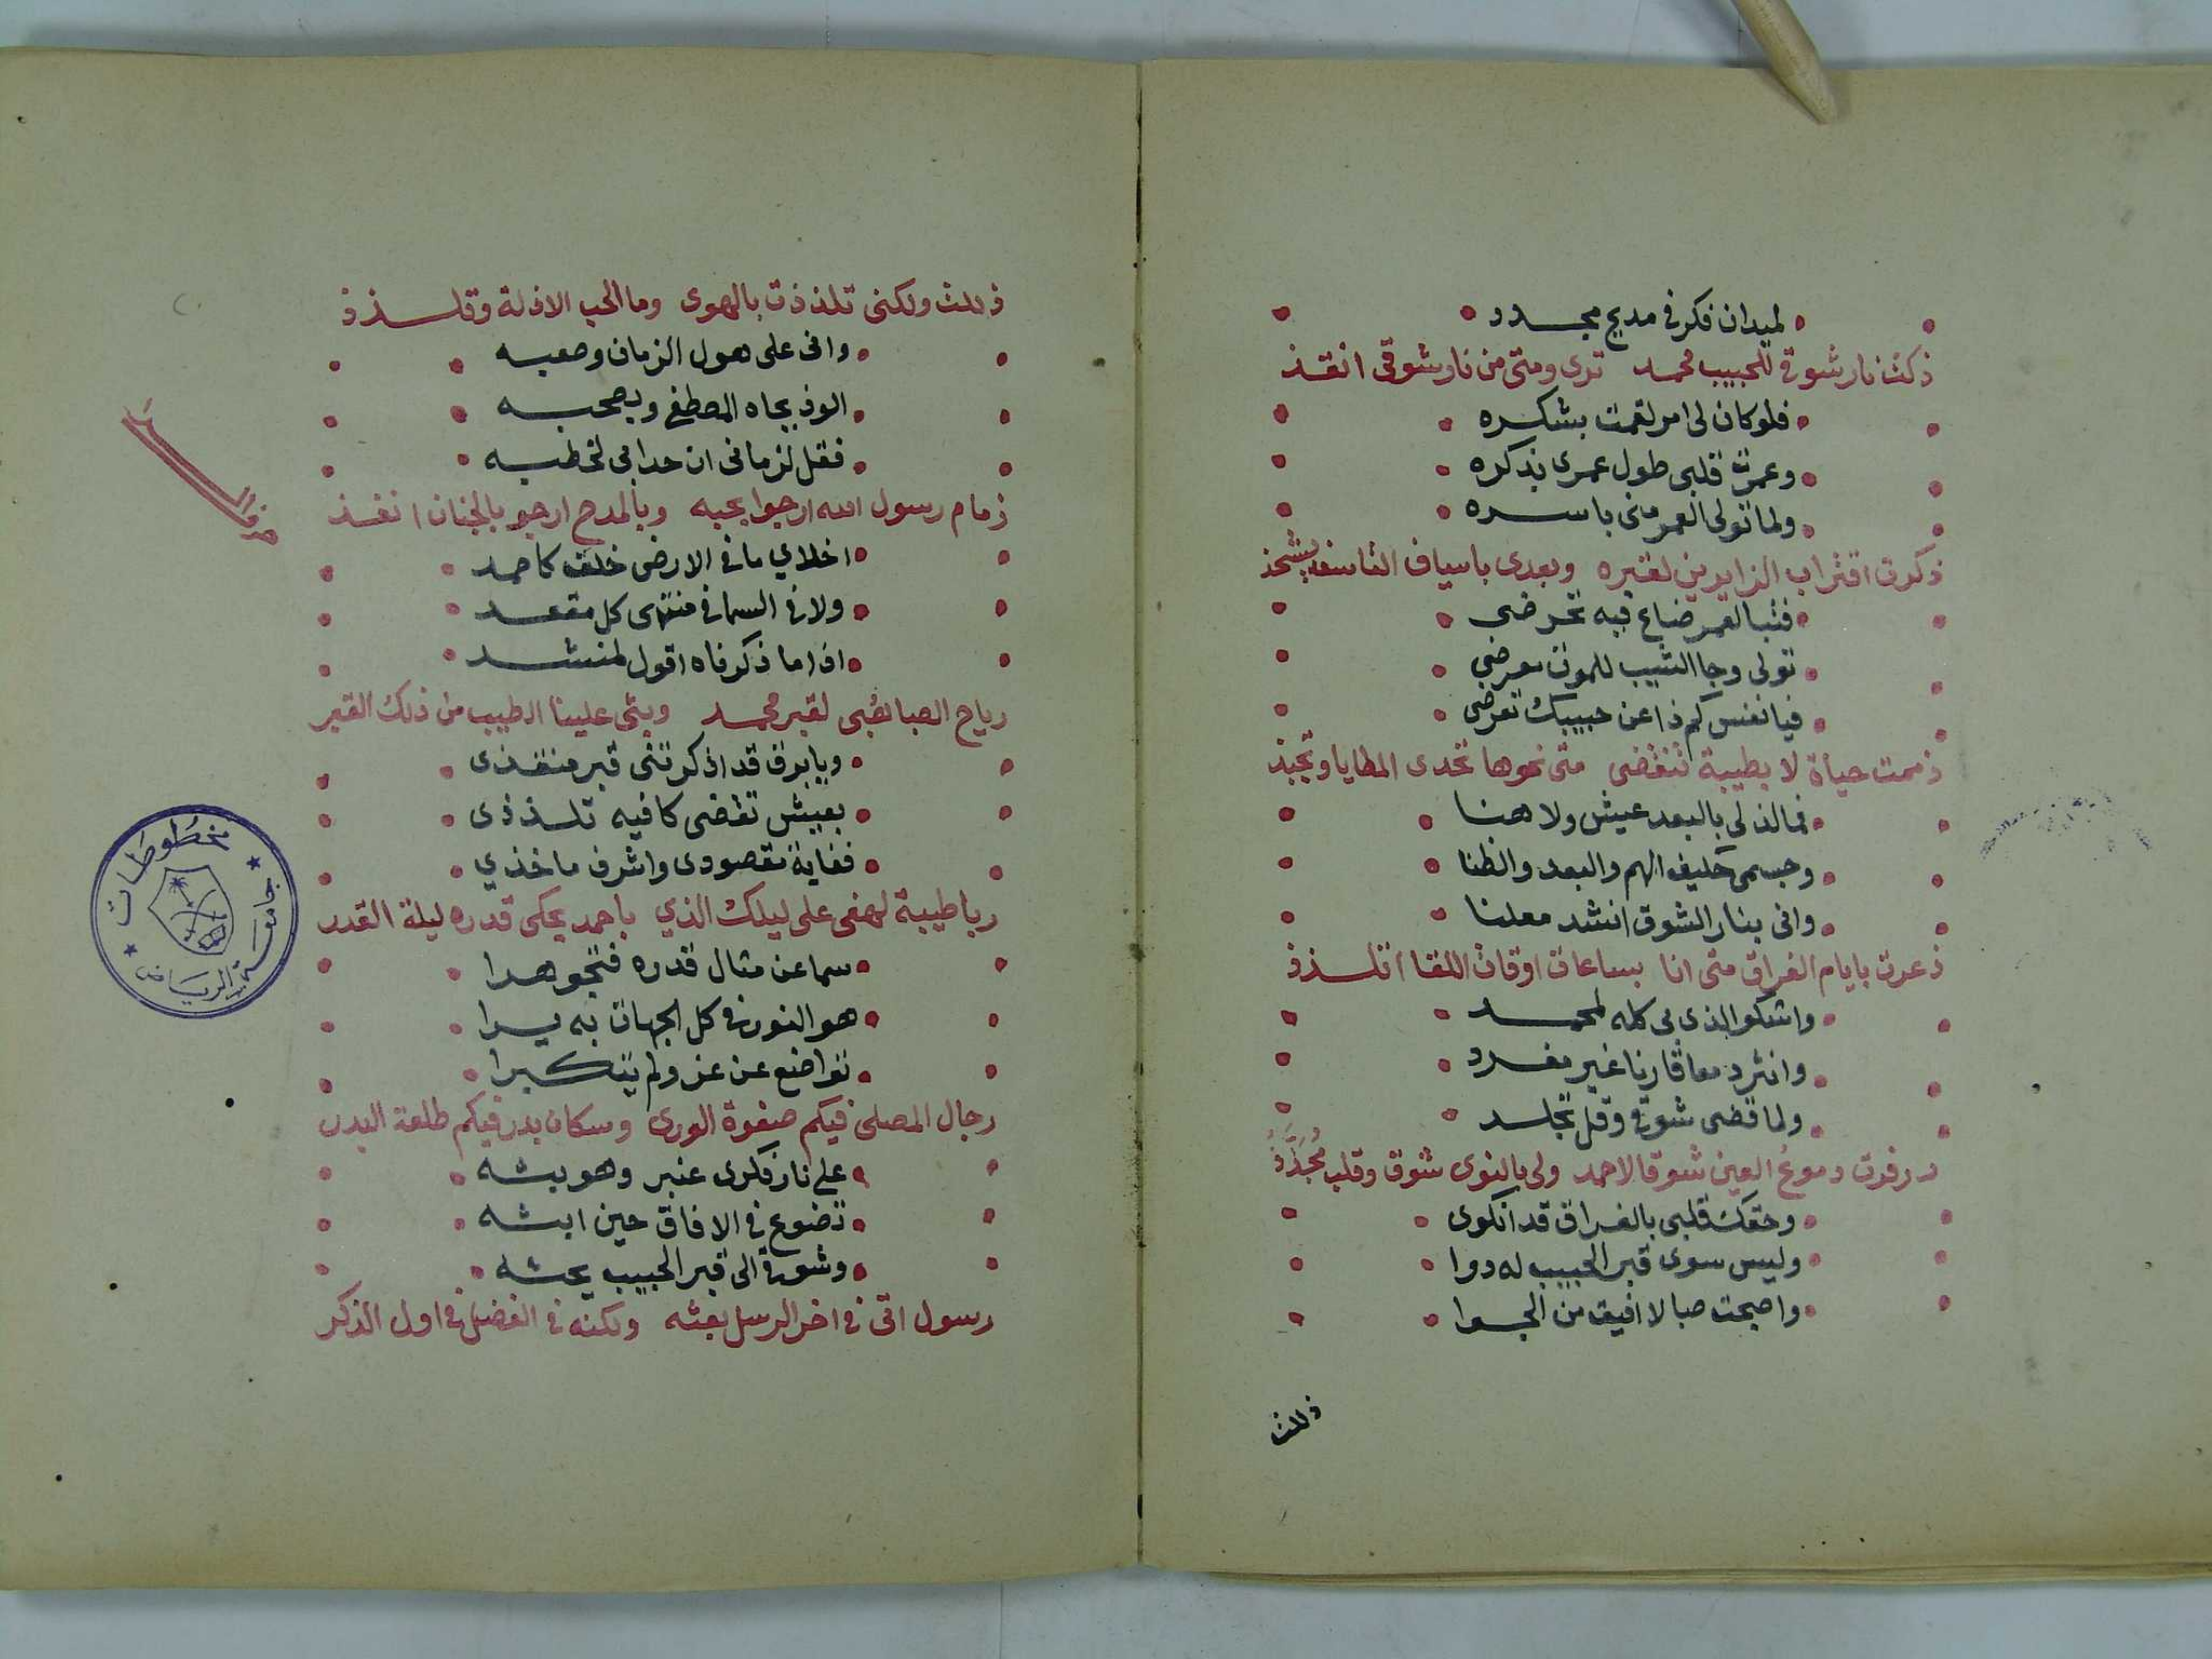 لميدان فكر في مديح مجدد
ذكت نار شوقي للحبيب محمد ترى ومتى من نار شوقي انقذ
فلو كان لي امر لقمت بشكره
وعمرت قلبي طول عمري بذكره
ولما تولى العمر مني باسره
ذكرت اقتراب الزايرين لقبره وبعدي باسياف التاسف يشحذ
فتبا لعمر ضاع فيه تحرضي
تولى وجا الشيب للموت معرضي
فيا نفس كم ذا عن حبيبك تعرضي
ذممت حياة لا بطيبة تنقضي متى نحوها تحدى المطايا وتجبذ
فما لذ لي بالبعد عيش ولا هنا
وجسمي حليف الهم والبعد والظنا
واني بنار الشوق انشد معلنا
ذعرت بايام الفراق متى انا بساعات اوقات اللقا اتلذذ
واشكو الذي بي كله لمحمد
وانثر دمعا قارنا غير مفرد
ولما قضى شوقي وقل تجلد
ذرفت دموع العين شوقا لاحمد ولي بالنوى شوق وقلب مجذذ
وحقك قلبي بالفراق قد انكوى
وليس سوى قبر الحبيب له دوا
واصبحت صبا لا افيق من الجوا
ذللت
ذللت ولكني تلذذت بالهوى وما الحب الا ذلة وتلذذ
واني على هول الزمان وصعبه
الوذ بجاه المصطفى وبصحبه
فقل لزماني ان حدا بي لخطبه
ذمام رسول الله ارجوا بحبه وبالمدح ارجو بالجنان انفذ
حرف الرا
اخلاي ما في الارض خلق كاحمد
ولا في السما في منتهى كل مقعد
اذا ما ذكرناه اقول لمنشد
رياح الصبا هبي لقبر محمد وبثي علينا الطيب من ذلك القبر
ويا برق قد اذكرتني قبر منقذي
بعيش تقضى كا فيه تلذذي
فغاية مقصودي واشرف ماخذي
ربا طيبة لهفي على ليلك الذي باحمد يحكى قدره ليلة القدر
سما عن مثال قدره فتجوهرا
هو النور في كل الجهات به يرا
تواضع عن عز ولم يتكبرا
رجال المصلى فيكم صفوة الورى وسكان بدر فيكم طلعة البدر
على نار فكري عنبر وهو بثه
تضوع في الافاق حين ابثه
وشوقي الى قبر الحبيب يحثه
رسول اتى في اخر الرسل بعثه ولكنه في الفضل في اول الذكر
مخطوطات
جامعة الرياض